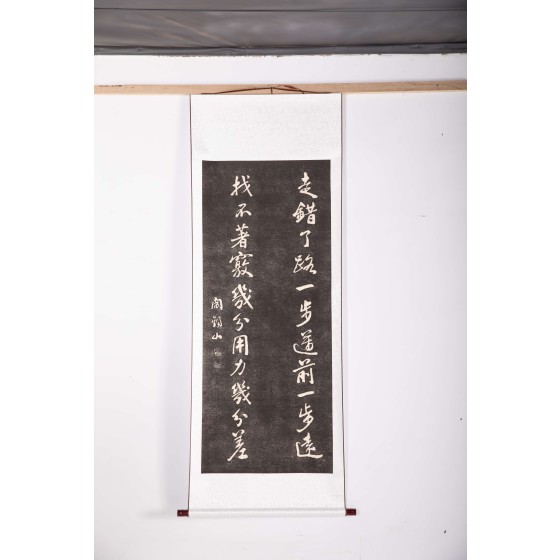 走錯了路一步邁前一步遠
找不著竅幾分用力幾分差
閻錫山